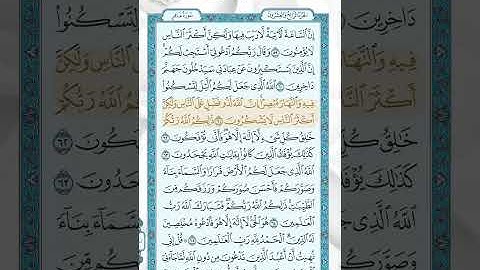 إِنَّ السَّاعَةَ لَآتِيَةٌ لَّا رَيْبَ فِيهَا وَلَٰكِنَّ أَكْثَرَ النَّاسِ
لَا يُؤْمِنُونَ ٥٩ وَقَالَ رَبُّكُمُ ادْعُونِي أَسْتَجِبْ لَكُمْ
إِنَّ الَّذِينَ يَسْتَكْبِرُونَ عَنْ عِبَادَتِي سَيَدْخُلُونَ جَهَنَّمَ
دَاخِرِينَ ٦٠ اللَّهُ الَّذِي جَعَلَ لَكُمُ اللَّيْلَ لِتَسْكُنُوا
فِيهِ وَالنَّهَارَ مُبْصِرًا إِنَّ اللَّهَ لَذُو فَضْلٍ عَلَى النَّاسِ وَلَٰكِنَّ
أَكْثَرَ النَّاسِ لَا يَشْكُرُونَ ٦١ ذَٰلِكُمُ اللَّهُ رَبُّكُمْ
خَالِقُ كُلِّ شَيْءٍ لَّا إِلَٰهَ إِلَّا هُوَ فَأَنَّىٰ تُؤْفَكُونَ ٦٢
كَذَٰلِكَ يُؤْفَكُ الَّذِينَ كَانُوا بِآيَاتِ اللَّهِ يَجْحَدُونَ ٦٣
اللَّهُ الَّذِي جَعَلَ لَكُمُ الْأَرْضَ قَرَارًا وَالسَّمَاءَ بِنَاءً
وَصَوَّرَكُمْ فَأَحْسَنَ صُوَرَكُمْ وَرَزَقَكُم مِّنَ
الطَّيِّبَاتِ ذَٰلِكُمُ اللَّهُ رَبُّكُمْ فَتَبَارَكَ اللَّهُ رَبُّ
الْعَالَمِينَ ٦٤ هُوَ الْحَيُّ لَا إِلَٰهَ إِلَّا هُوَ فَادْعُوهُ مُخْلِصِينَ
لَهُ الدِّينَ الْحَمْدُ لِلَّهِ رَبِّ الْعَالَمِينَ ٦٥ قُلْ إِنِّي
نُهِيتُ أَنْ أَعْبُدَ الَّذِينَ تَدْعُونَ مِن دُونِ اللَّهِ لَمَّا جَاءَنِيَ